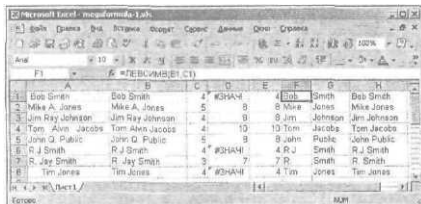 Microsoft Excel - megaformula-1.xls
Файл Правка Вид Вставка Формат Сервис Данные Окно Справка
100%
Arial 10 Ж К Ч
F1 =ЛЕВСИМВ(B1;C1)
A B C D E F G H
1 Bob Smith Bob Smith 4 #ЗНАЧ! 4 Bob Smith Bob Smith
2 Mike A. Jones Mike A. Jones 5 8 8 Mike Jones Mike Jones
3 Jim Ray Johnson Jim Ray Johnson 4 8 8 Jim Johnson Jim Johnson
4 Tom Alvin Jacobs Tom Alvin Jacobs 4 10 10 Tom Jacobs Tom Jacobs
5 John Q. Public John Q. Public 5 8 8 John Public John Public
6 R.J Smith R.J Smith 4 #ЗНАЧ! 4 R.J Smith R.J Smith
7 R. Jay Smith R. Jay Smith 3 7 7 R. Smith R. Smith
8 Tim Jones Tim Jones 4 #ЗНАЧ! 4 Tim Jones Tim Jones
Лист1
Готово NUM